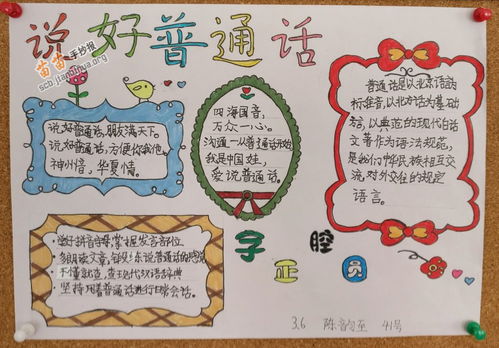 说好普通话
苗苗手抄报
scb.jianhua.org
说好普通话,朋友满天下。
说好普通话,方便你我他。
神州音,华夏情。
四海国音,
万众一心。
沟通—从普通话开始
我是中国娃,
爱说普通话。
普通话是以北京语音
标准音,以北方话为基础
方言,以典范的现代白话
文著作为语法规范,
是我们中华民族相互交
流,对外交往的规定
语言。
做好拼音
掌握发音部位
多朗读文章,
说普通话
不懂就查,查现代汉语辞典
坚持用普通话进行日常会话。
字正腔圆
3.6 陈韵至 41号